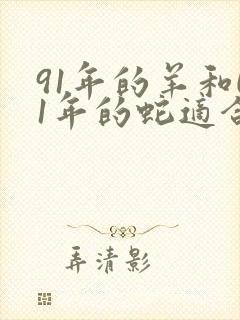 91年的羊和
1年的蛇适合
弄清影